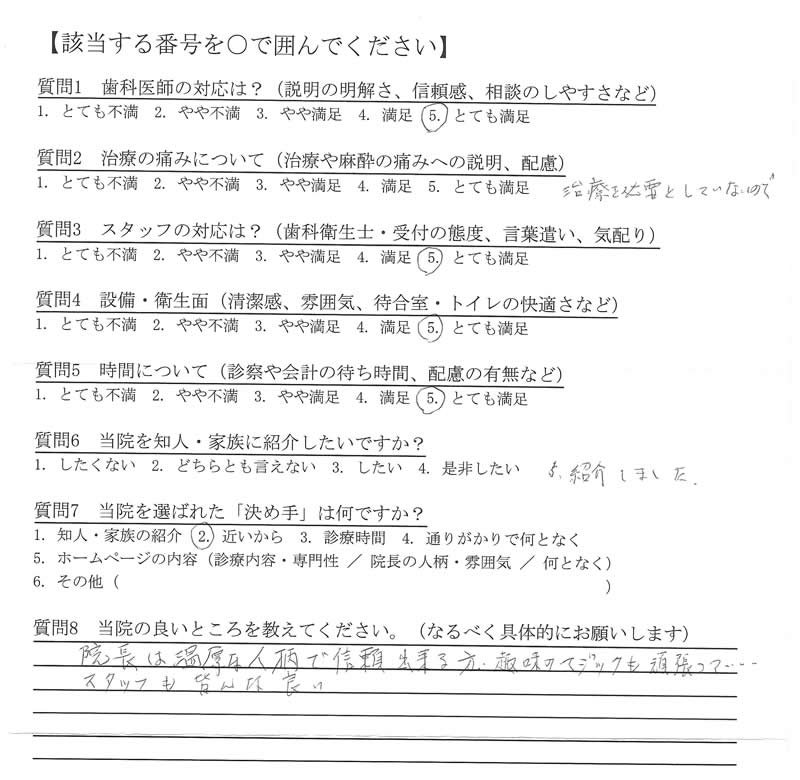 【該当する番号を〇で囲んでください】
質問1 歯科医師の対応は？（説明の明解さ、信頼感、相談のしやすさなど）
1. とても不満 2. やや不満 3. やや満足 4. 満足 5. とても満足
質問2 治療の痛みについて（治療や麻酔の痛みへの説明、配慮）
1. とても不満 2. やや不満 3. やや満足 4. 満足 5. とても満足 治療を必要としていないので
質問3 スタッフの対応は？（歯科衛生士・受付の態度、言葉遣い、気配り）
1. とても不満 2. やや不満 3. やや満足 4. 満足 5. とても満足
質問4 設備・衛生面（清潔感、雰囲気、待合室・トイレの快適さなど）
1. とても不満 2. やや不満 3. やや満足 4. 満足 5. とても満足
質問5 時間について（診察や会計の待ち時間、配慮の有無など）
1. とても不満 2. やや不満 3. やや満足 4. 満足 5. とても満足
質問6 当院を知人・家族に紹介したいですか？
1. したくない 2. どちらとも言えない 3. したい 4. 是非したい 5. 紹介しました.
質問7 当院を選ばれた「決め手」は何ですか？
1. 知人・家族の紹介 2. 近いから 3. 診療時間 4. 通りがかりで何となく
5. ホームページの内容（診療内容・専門性 ／ 院長の人柄・雰囲気 ／ 何となく）
6. その他（ ）
質問8 当院の良いところを教えてください。（なるべく具体的にお願いします）
院長は温厚な人柄で信頼出来る方. 趣味のマジックも頑張って‥‥
スタッフも皆んな良い